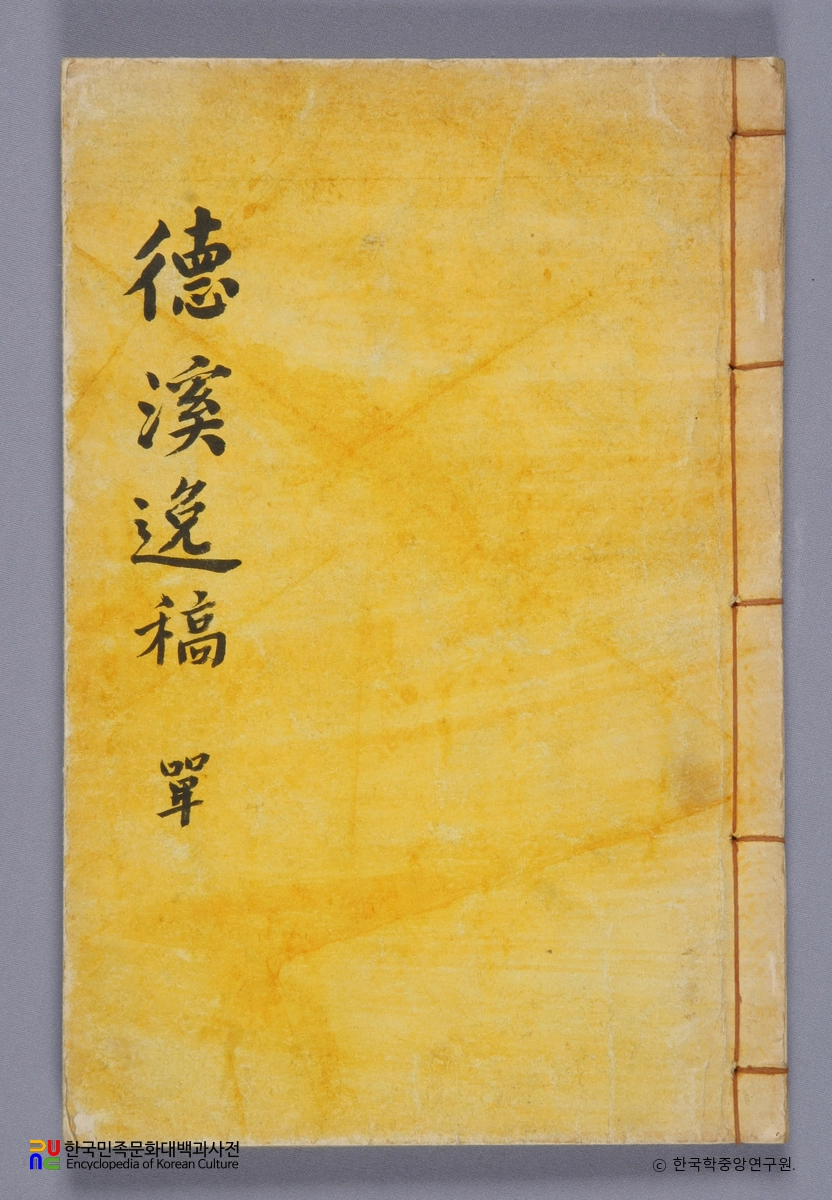 德溪逸稿 單
한국민족문화대백과사전
Encyclopedia of Korean Culture
ⓒ 한국학중앙연구원.